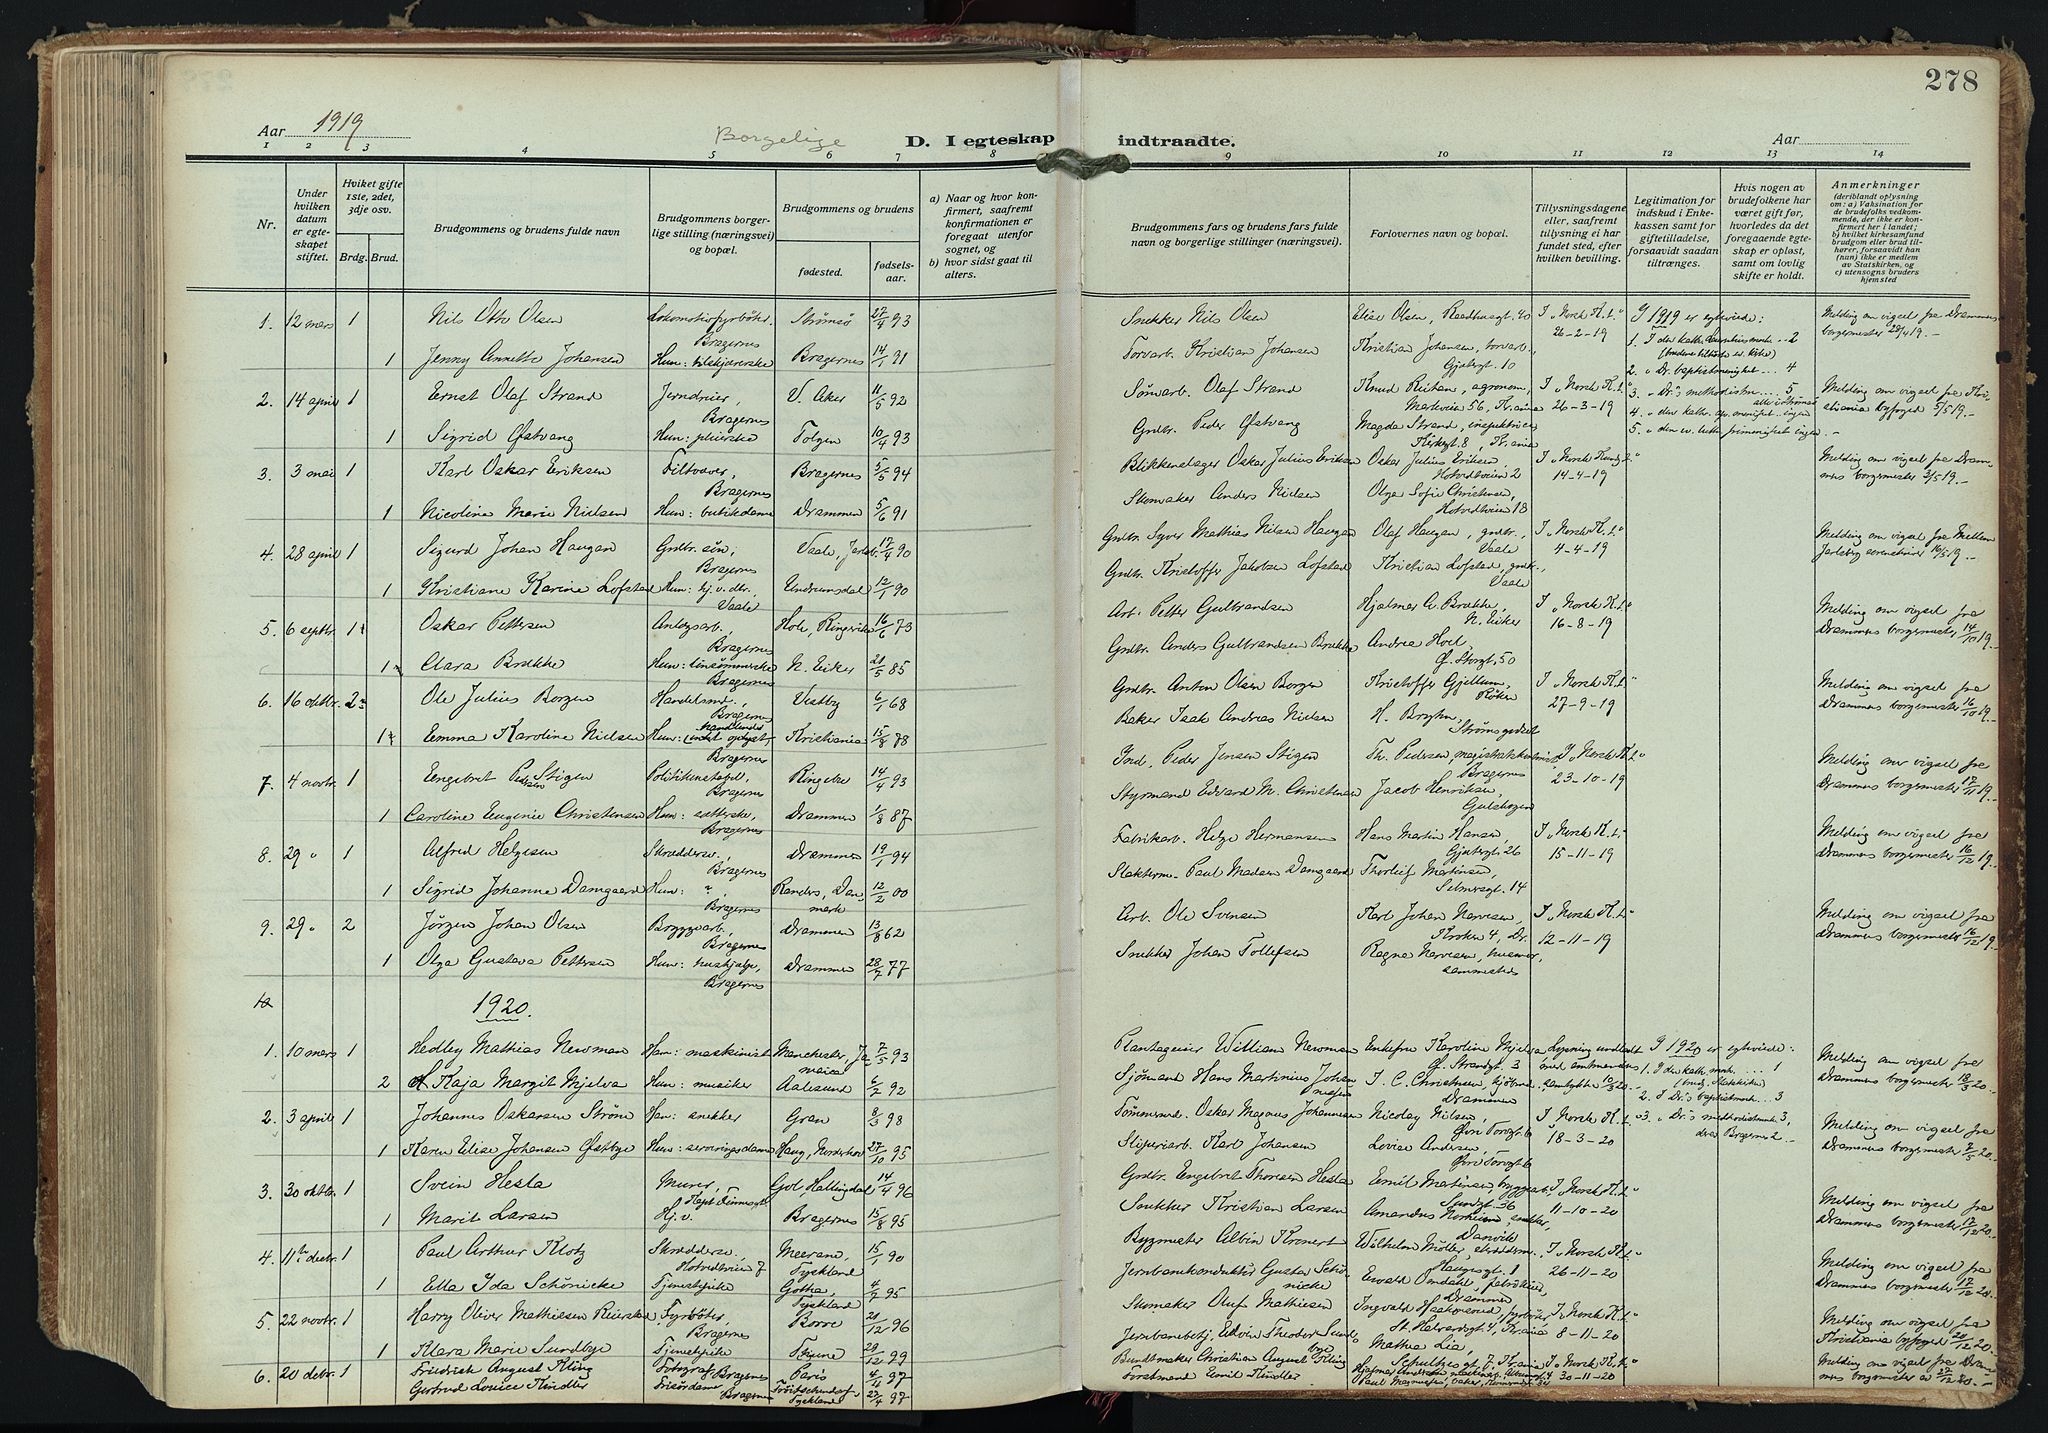 278
Aar 1919
Borgelige
D. I egteskap indtraadte.
Aar
1 2 3 4 5 6 7 8 9 10 11 12 13 14
Nr.
Under hvilken datum er egteskapet stiftet.
Hviket gifte 1ste, 2det, 3dje osv.
Brdg. Brud.
Brudgommens og brudens fulde navn
Brudgommens borgerlige stilling (næringsvei) og bopæl.
Brudgommens og brudens
fødested.
fødselsaar.
a) Naar og hvor konfirmert, saafremt konfirmationen er foregaat utenfor sognet, og
b) hvor sidst gaat til alters.
Brudgommens fars og brudens fars fulde navn og borgerlige stillinger (næringsvei).
Forlovernes navn og bopæl.
Tillysningsdagene eller, saafremt tillysning ei har fundet sted, efter hvilken bevilling.
Legitimation for indskud i Enkekassen samt for giftetilladelse, forsaavidt saadan tiltrænges.
Hvis nogen av brudefolkene har været gift før, hvorledes da det foregaaende egteskap er opløst, samt om lovlig skifte er holdt.
Anmerkninger (deriblandt oplysning om: a) Vaksination for de brudefolks vedkommende, der ikke er konfirmert her i landet; b) hvilket kirkesamfund brudgom eller brud tilhører, forsaavidt han (hun) ikke er medlem av Statskirken, og c) utensogns bruders hjemsted
1. 12 mars 1 Nils Otto Olsen Lokomotivfyrbøter, Bragernes Strømsø 27/4 93 Snekker Nils Olsen Elise Olsen, Raadhusgt. 40 I "Norsk K.t." 26-2-19 I 1919 er egteviede: Melding om vigsel fra Drammens borgermester
1 Jenny Annette Johansen Hun: Bragernes 14/1 91 Torvarb. Kristian Johansen Kristian Johansen, torvarb., Gjetergt. 10
2. 14 april 1 Ernst Olaf Strand Jerndreier, Bragernes V. Aker 11/5 92 Olaf Strand Knud agronom, 56, Kr.ania I "Norsk K.t." 26-3-19 Melding om vigsel fra Kristiania byfoged 5/5 19.-
1 Sigrid Østvang Hun: pleierske Tolgen 10/4 93 Grdbr. Peder Østvang Magda Strand, inspektrice, Kirkegt. 8, Kr.ania
3. 3 mai 1 Karl Oskar Eriksen Bragernes Bragernes 5/5 94 Blikkenslager Oskar Julius Eriksen Oskar Julius Eriksen Hotvedtveien 2 I "Norsk Kundg.t." 14-4-19 Melding om vigsel fra Drammens borgermester
1 Nicoline Marie Nielsen Hun: butikdame Drammen 5/6 91 Skomaker Anders Nielsen Olga Sofie Christensen, Hotvedtveien 18
4. 28 april 1 Sigurd Johan Haugan Grdbr. søn, Bragernes Vaale, Jarlsb. 17/4 90 Grdbr. Syver Mathias Nilsen Haugan Olaf Haugan, grdbr., Vaale I "Norsk K.t." 4-4-19 Melding om vigsel fra Mellem Jarlsberg sorenskriver 16/5 19.-
1 Kristiane Karine Lofstad Hun: hj. v. dtr., Vaale Undrumsdal 12/1 90 Grdbr. Kristoffer Jakobsen Lofstad Kristian Lofstad, grdbr., Vaale
5. 6 septbr. 1 Oskar Pettersen Anlegsarb., Bragernes Hole, Ringerike 16/6 73 Arb. Petter Gulbrandsen Hjalmar A. Brække, N. Eiker I "Norsk K.t." 16-8-19 Melding om vigsel fra Drammens borgermester 14/10 19.-
1 Clara Brække Hun: linsømmerske Bragernes N. Eiker 21/5 85 Grdbr. Anders Gulbrandsen Brække Andrea Hoel, Ø. Storgt. 50
6. 16 oktbr. 2 Ole Julius Borgen Handelsmd., Bragernes Vestby 6/1 68 Grdbr. Anton Olsen Borgen Kristoffer Gjellum, Røken I "Norsk K.t." 27-9-19 Melding om vigsel fra Drammens borgermester 16/10 19.-
1 Emma Karoline Nielsen Hun: Bragernes Kristiania 15/8 78 Baker Isak Andreas Nielsen H. Bryhn, Strømsgodset
7. 4 novbr. 1 Engebret Pedersen Stigen Politikonstabel, Bragernes Ringebu 14/4 93 Ind. Peder Jensen Stigen Th. Pedersen, Bragernes I "Norsk K.t." 23-10-19 Melding om vigsel fra Drammens borgermester 17/11 19.-
1 Caroline Eugenie Christensen Hun: sætterske, Bragernes Drammen 1/8 87 Styrmand Edvard M. Christensen Jacob Henriksen, Gulskogen
8. 29 " 1 Alfred Helgesen Skræddersv., Bragernes Drammen 19/1 94 Fabrikarb. Helge Hermansen Hans Martin Hansen, Gjetergt. 26 I "Norsk K.t." 15-11-19 Melding om vigsel fra Drammens borgermester 16/12 19.-
1 Sigrid Johanne Damgaard Hun: " , Bragernes Randers, Danmark 12/2 00 Slakterm. Paul Madsen Damgaard Thorleif Martinsen, Selmersgt. 14
9. 29 " 2 Jørgen Johan Olsen Bryggearb., Bragernes Drammen 13/8 62 Arb. Ole Svensen Karl Johan Narvesen, Kroken 4, Dr. I "Norsk K.t." 12-11-19 Melding om vigsel fra Drammens borgermester 16/12 19.-
1 Olga Gustava Pettersen Hun: hushjelp, Bragernes Drammen 28/7 77 Snekker Johan Tollefsen Ragna Narvesen, husmor, sammesteds
1920.
1. 10 mars 1 Hedley Mathias Newman Han: maskinist Manchester, Jamaica 7/5 93 Plantageeier William Newman Enkefru Karoline Mjelva, Ø. Strandgt. 3 Lysning undladt med amtmandens samtykke 10/3 20.- I 1920 er egteviede: Melding om vigsel fra Drammens borgermester 18/3 20.-
2 Kaja Margit Mjelva Hun: musiker Aalesund 6/2 92 Sjømand Hans Martinius Johannesen J. C. Christensen, Drammen
2. 3 april 1 Johannes Oskarsen Strøm Han: snekker Gran 8/3 98 Tømmermd. Oskar Magnus Johannesen Nicolay Nilsen, Øvre Torvgt. 6 I "Norsk K.t." 18-3-20 Melding om vigsel fra Drammens borgermester 7/5 20.-
1 Karen Elise Johansen Østbye Hun: serveringsdame Haug, Norderhov 27/10 95 Sliperiarb. Karl Johansen Lovise Andersen, Øvre Torvgt. 6
3. 30 oktbr. 1 Svein Hesla Murer, Gol, Hallingdal 14/4 96 Grdbr. Engebret Thoresen Hesla Emil Martinsen, bryggearb., Sundgt. 36 I "Norsk K.t." 11-10-20 Melding om vigsel fra Drammens borgermester 17/12 20.-
1 Marit Larsen Hj. v. Bragernes 15/8 95 Snekker Kristian Larsen Amandus Norheim, snekker, Danvik
4. 11te decbr. 1 Paul Arthur Klotz Skræddersv., Hotvedtveien 7 Meerane, Tyskland 15/1 90 Bygmester Albin Kronert Wilhelm Møller, skrædderm., Haugesgt. 1 I "Norsk K.t." 26-11-20 Melding om vigsel fra Drammens borgermester 17/12 20.-
1 Ella Ida Schönicke Tjenestepike Gotha, Tyskland 4/7 95 Jernbanekonduktør Gustav Schönicke Ewald Omdahl, fabrikeier, Drammen
5. 22 novbr. 1 Harry Oliver Mathiesen Fyrbøter, Bragernes Borre 20/12 96 Skomaker Oluf Mathiesen Ingvald fyrbøter, St. Halvardsgt. 4, Kr.ania I "Norsk K.t." 8-11-20 Melding om vigsel fra Kristiania byfoged 20/12 20.
1 Klara Marie Sundbye Tjenestepike 29/12 99 Jernbanebetj. Edvin Theodor Sundbye Mathea Lia, Schultzes gt. 7, Kr.ania
6. 20 debr. 1 Friedrich August Kling Fotograf, Bragernes Paris 4/4 97 Bundtmaker Christian August Kling Hjalmar I "Norsk K.t." 30-11-20 Melding om vigsel fra Drammens borgermester av 27/12 20.-
Gertrud Louise Kindler Frisørdame Bragernes Tyskland 23/4 97 Forstmand Emil Kindler Paul baker,